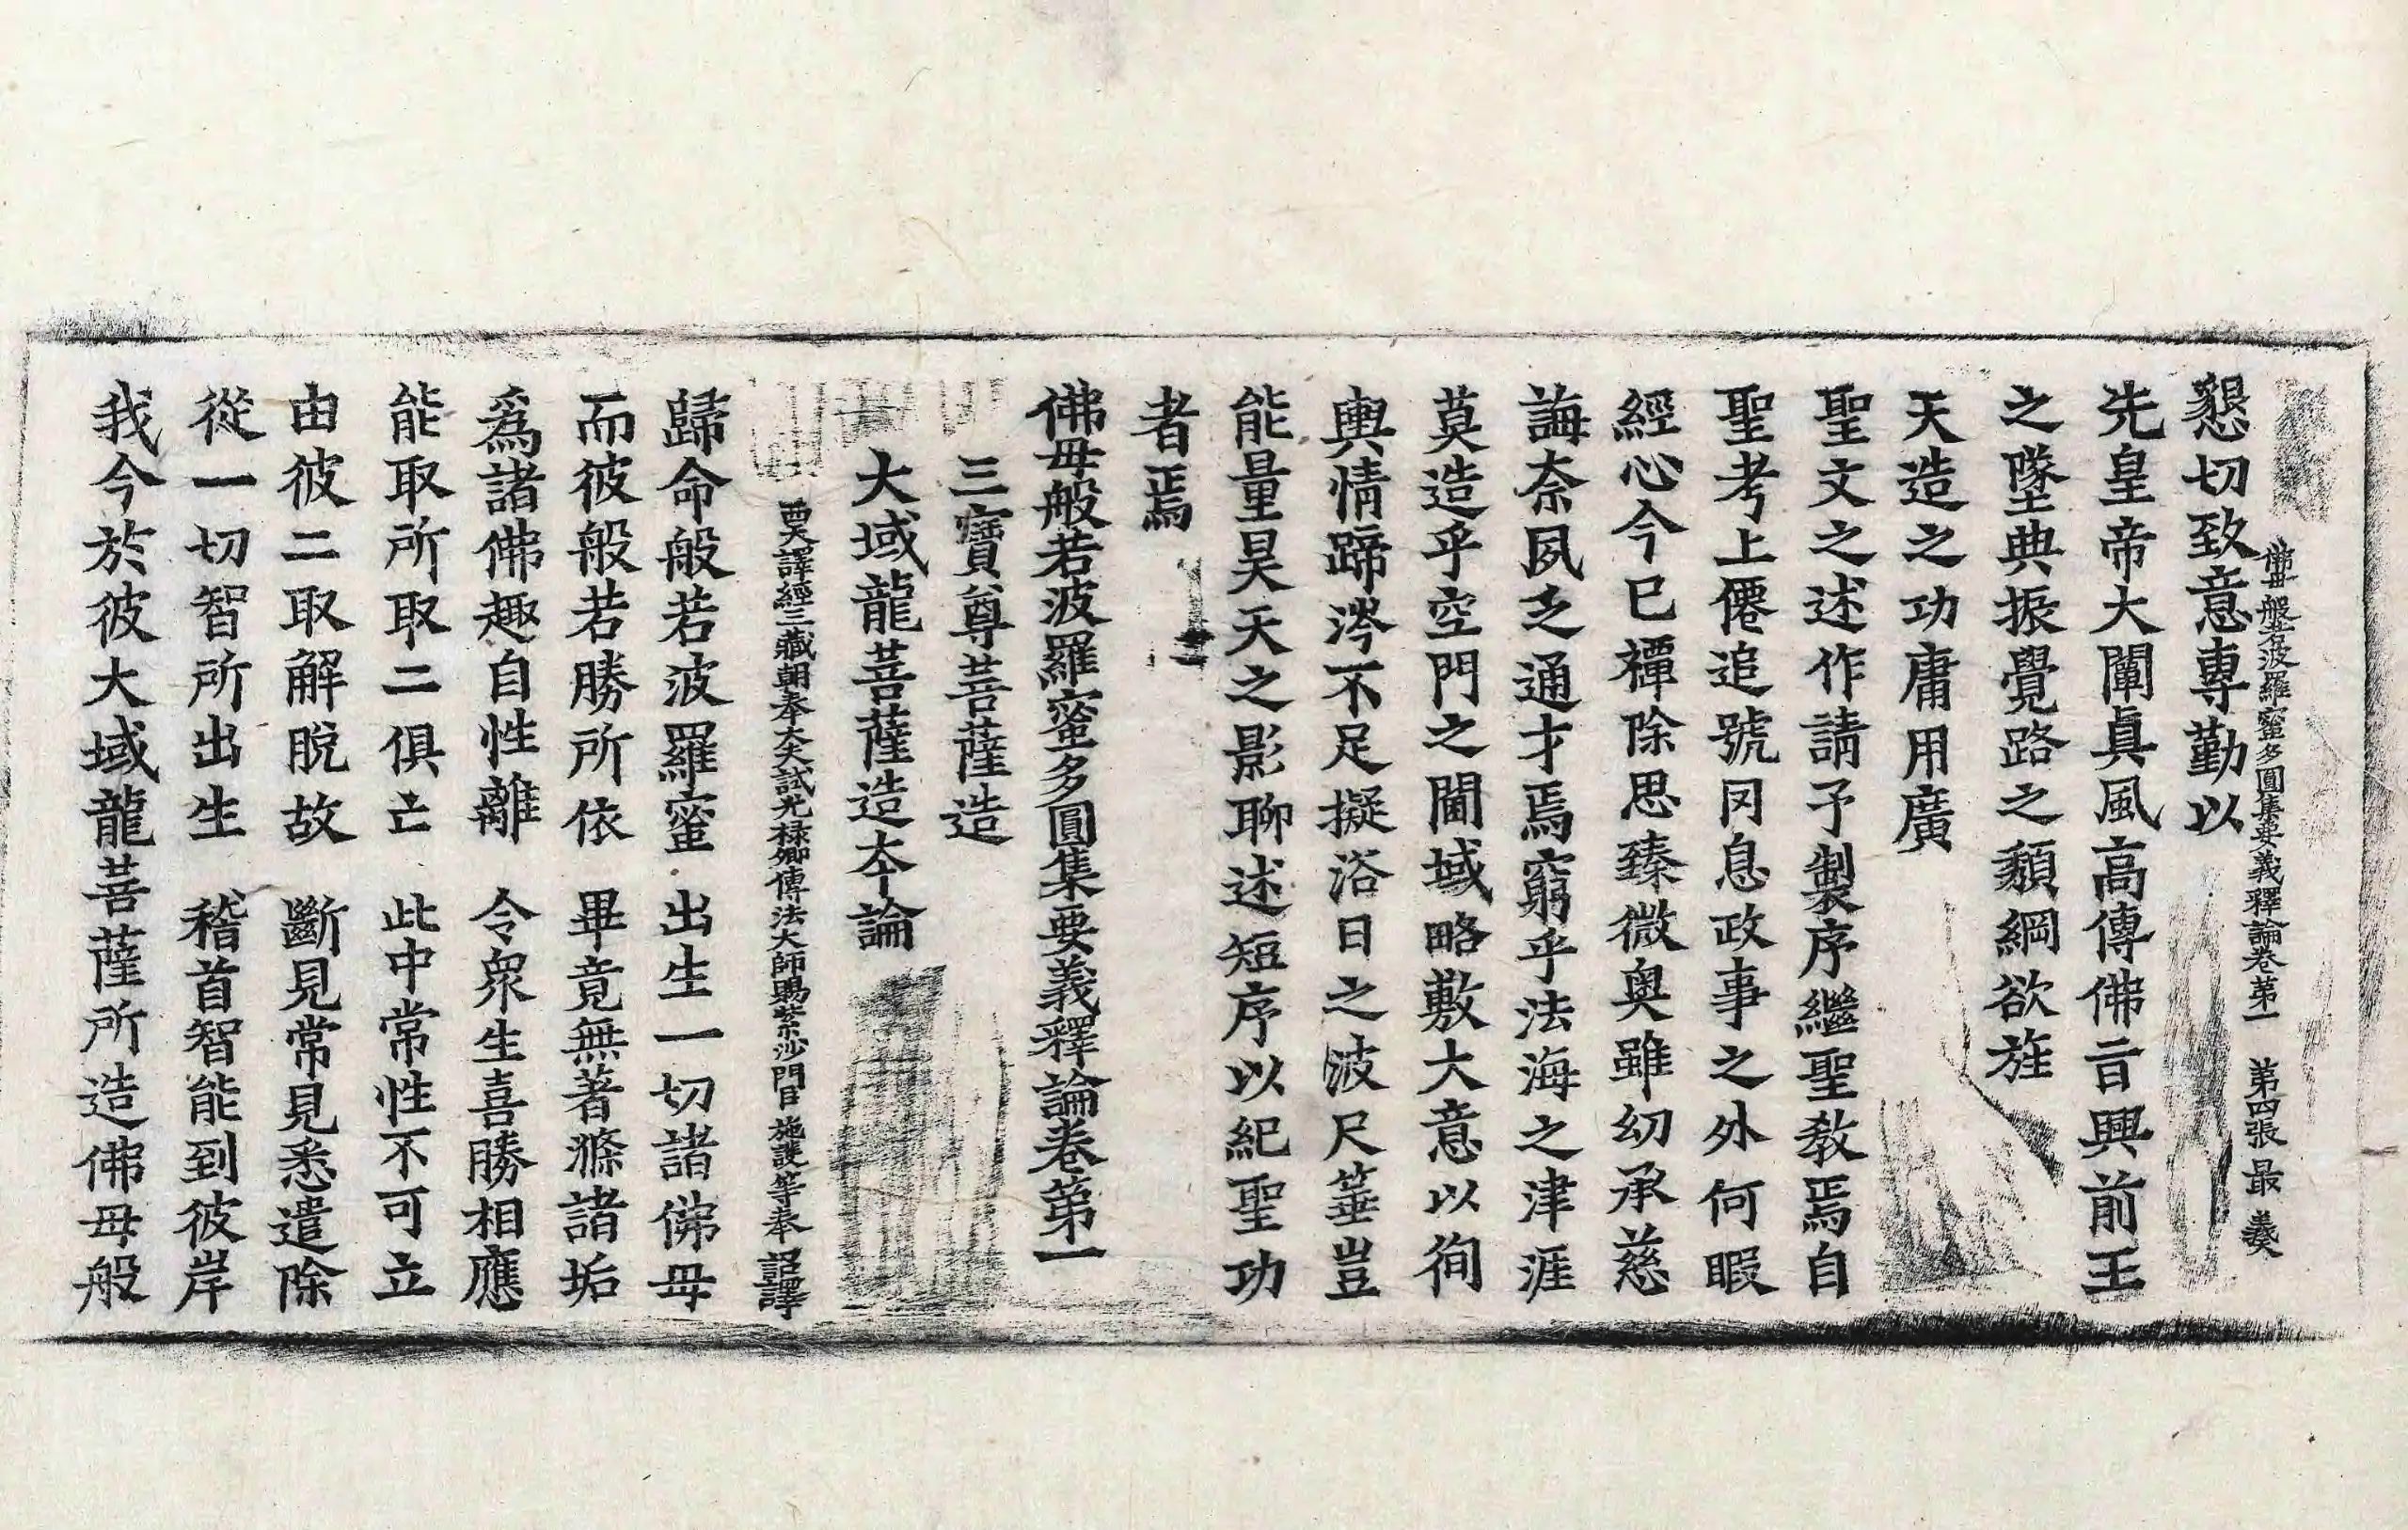 佛母般若波羅蜜多圓集要義釋論卷第一　第四張　最　羲
懇切致意專勤以
先皇帝大闡眞風高傳佛旨興前王
之墜典振覺路之頹綱欲旌
天造之功庸用廣
聖文之述作請予製序繼聖教焉自
聖考上僊追號罔息政事之外何暇
經心今已禫除思臻微奧雖幼承慈
誨奈夙乏通才焉窮乎法海之津涯
莫造乎空門之閫域略敷大意以徇
輿情蹄涔不足擬浴日之波尺箠豈
能量昊天之影聊述短序以紀聖功
者焉
佛母般若波羅蜜多圓集要義釋論卷第一
三寶尊菩薩造
大域龍菩薩造本論
西天譯經三藏朝奉大夫試光祿卿傳法大師賜紫沙門臣施護等奉　詔譯
歸命般若波羅蜜　出生一切諸佛母
而彼般若勝所依　畢竟無著滌諸垢
爲諸佛趣自性離　令衆生喜勝相應
能取所取二俱亡　此中常性不可立
由彼二取解脫故　斷見常見悉遣除
從一切智所出生　稽首智能到彼岸
我今於彼大域龍菩薩所造佛母般